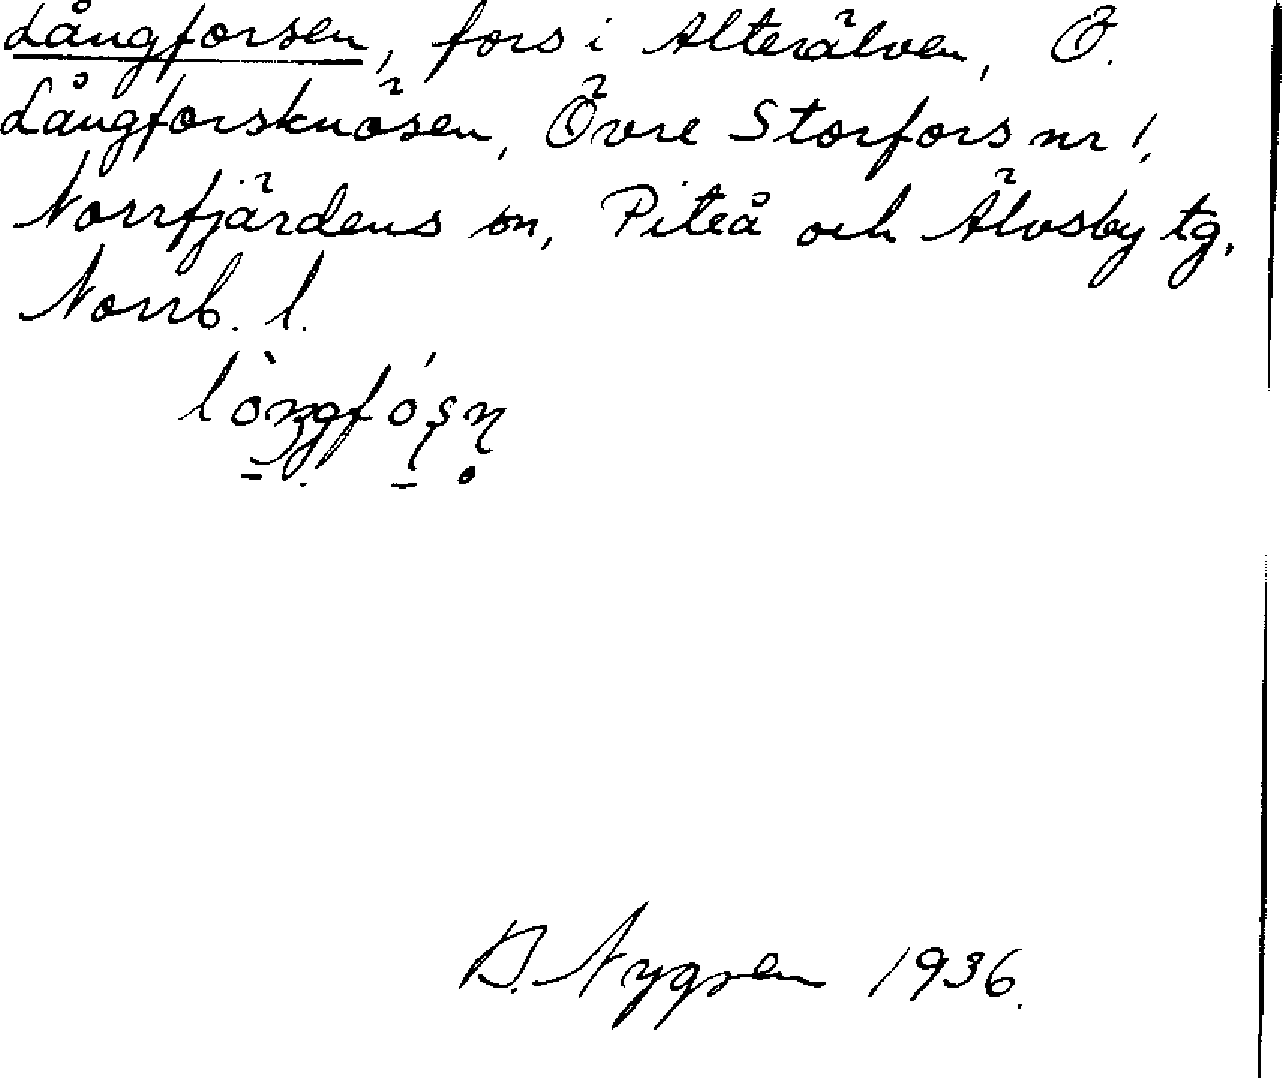 Långforsen, fors i Alterälven, Ö.
Långforsknösen, Övre Storfors nr 1,
Norrfjärdens sn, Piteå och Älvsby tg,
Norrb. l.
1936.